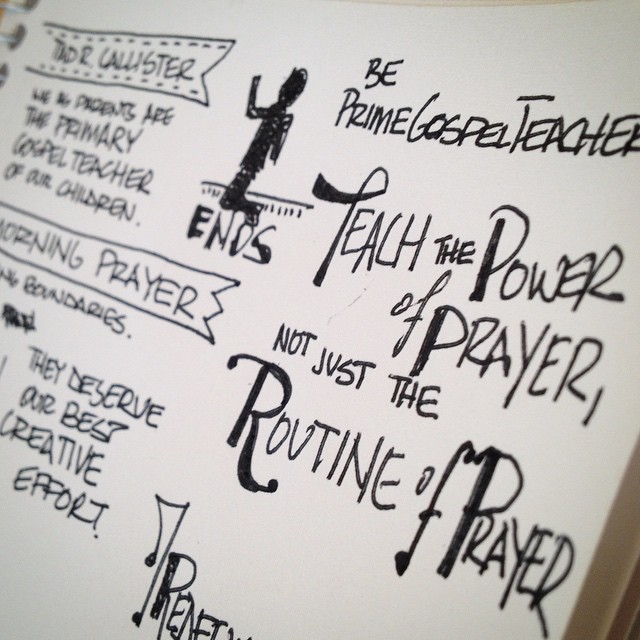 TAD R CALLISTER
WE AS PARENTS ARE
THE PRIMARY
GOSPEL TEACHER
OF OUR CHILDREN.
MORNING PRAYER
BOUNDARIES.
THEY DESERVE
OUR BEST
CREATIVE
EFFORT.
ENDS
BE
PRIME GOSPEL TEACHER
TEACH THE POWER
of PRAYER,
NOT JUST THE
ROUTINE of PRAYER